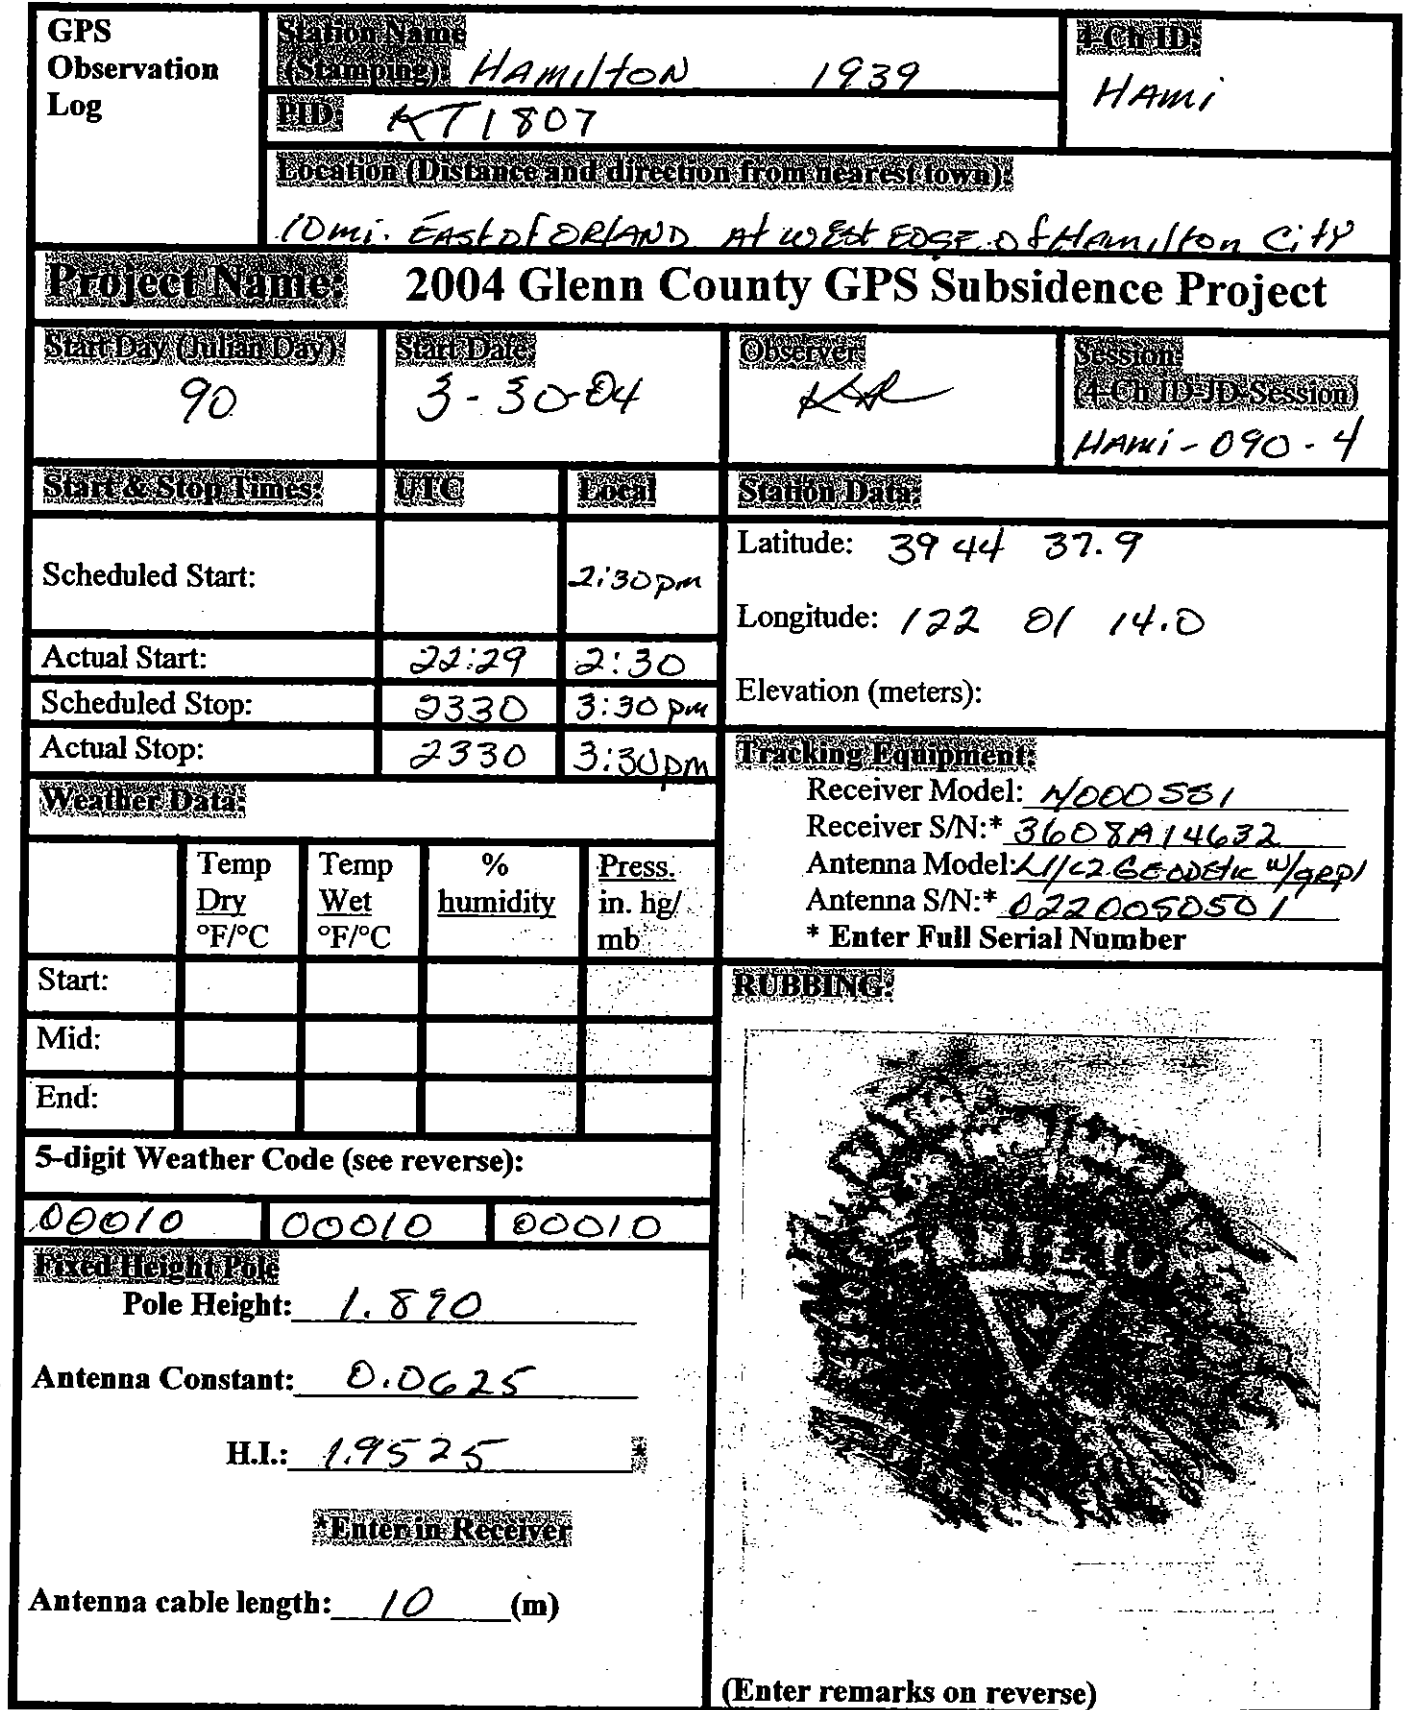 GPS
Observation
Log
Station Name
(Stamping): HAmiltoN 1939
4-Ch ID:
HAmi
PID: KT1807
Location (Distance and direction from nearest town):
10mi. EAst of ORlAND At wESt EDGE of Hamilton City
Project Name: 2004 Glenn County GPS Subsidence Project
Start Day (Julian Day)
90
Start Date
3-30-04
Observer
KR
Session:
(4-Ch ID-JD-Session)
HAmi-090-4
Start & Stop Times: UTC Local
Scheduled Start: 2:30pm
Actual Start: 22:29 2:30
Scheduled Stop: 2330 3:30 pm
Actual Stop: 2330 3:30pm
Station Data:
Latitude: 39 44 37.9
Longitude: 122 01 14.0
Elevation (meters):
Tracking Equipment:
Receiver Model:
Receiver S/N:* 3608A14632
Antenna Model: L1/L2 GEODEtic w/GRP1
Antenna S/N:* 0220050501
* Enter Full Serial Number
Weather Data:
Temp
Dry
°F/°C
Temp
Wet
°F/°C
%
humidity
Press.
in. hg/
mb
Start:
Mid:
End:
5-digit Weather Code (see reverse):
00010 00010 00010
Fixed Height Pole
Pole Height: 1.890
Antenna Constant: 0.0625
H.I.: 1.9525 *
*Enter in Receiver
Antenna cable length: 10 (m)
RUBBING:
(Enter remarks on reverse)